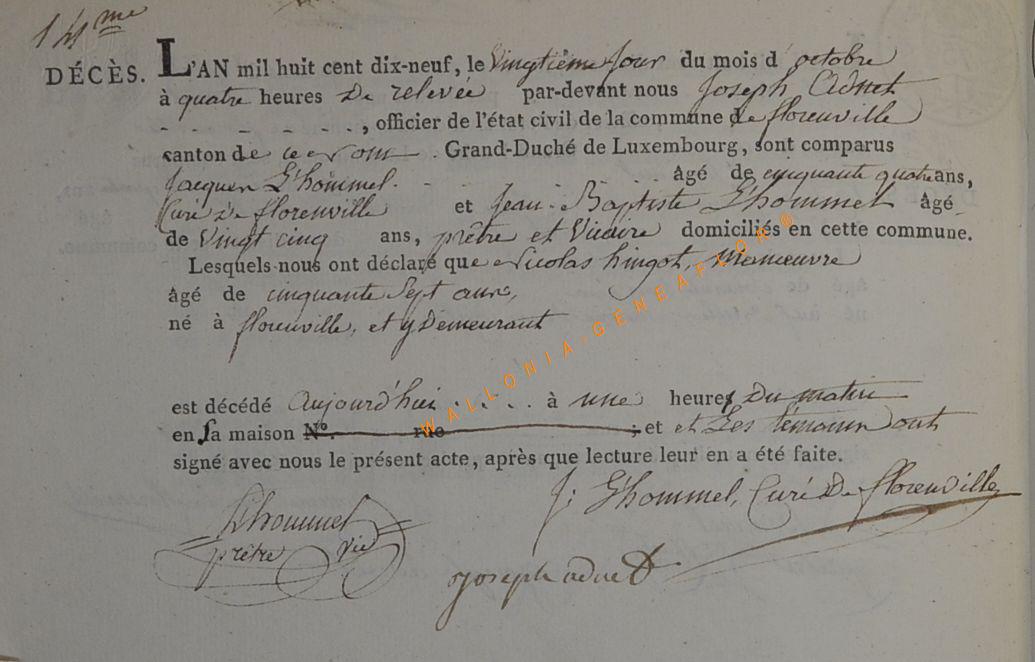 14me
DÉCÈS. L'AN mil huit cent dix-neuf, le Vingtième Jour du mois d'octobre
à quatre heures De relevée par-devant nous Joseph Adnet
- - - - - - -, officier de l'état civil de la commune de florenville
canton de ce nom. Grand-Duché de Luxembourg, sont comparus
Jacques L'hommel. - - - âgé de cinquante quatre ans,
Curé de florenville et Jean-Baptiste L'hommel âgé
de Vingt cinq ans, prêtre et Vicaire domiciliés en cette commune.
Lesquels nous ont déclaré que Nicolas hingot, Manœuvre
âgé de cinquante Sept ans,
né à florenville, et y Demeurant
est décédé aujourd'hui . . . . . à une heure Du matin
en sa maison N°. rue ; et et Les témoins ont
signé avec nous le présent acte, après que lecture leur en a été faite.
L'hommel
prêtre Vic
J: L'hommel, Curé De florenville
Joseph adnet
WALLONIA-GENEAFLOR®